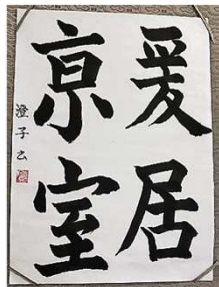 爰居
京室
澄子書